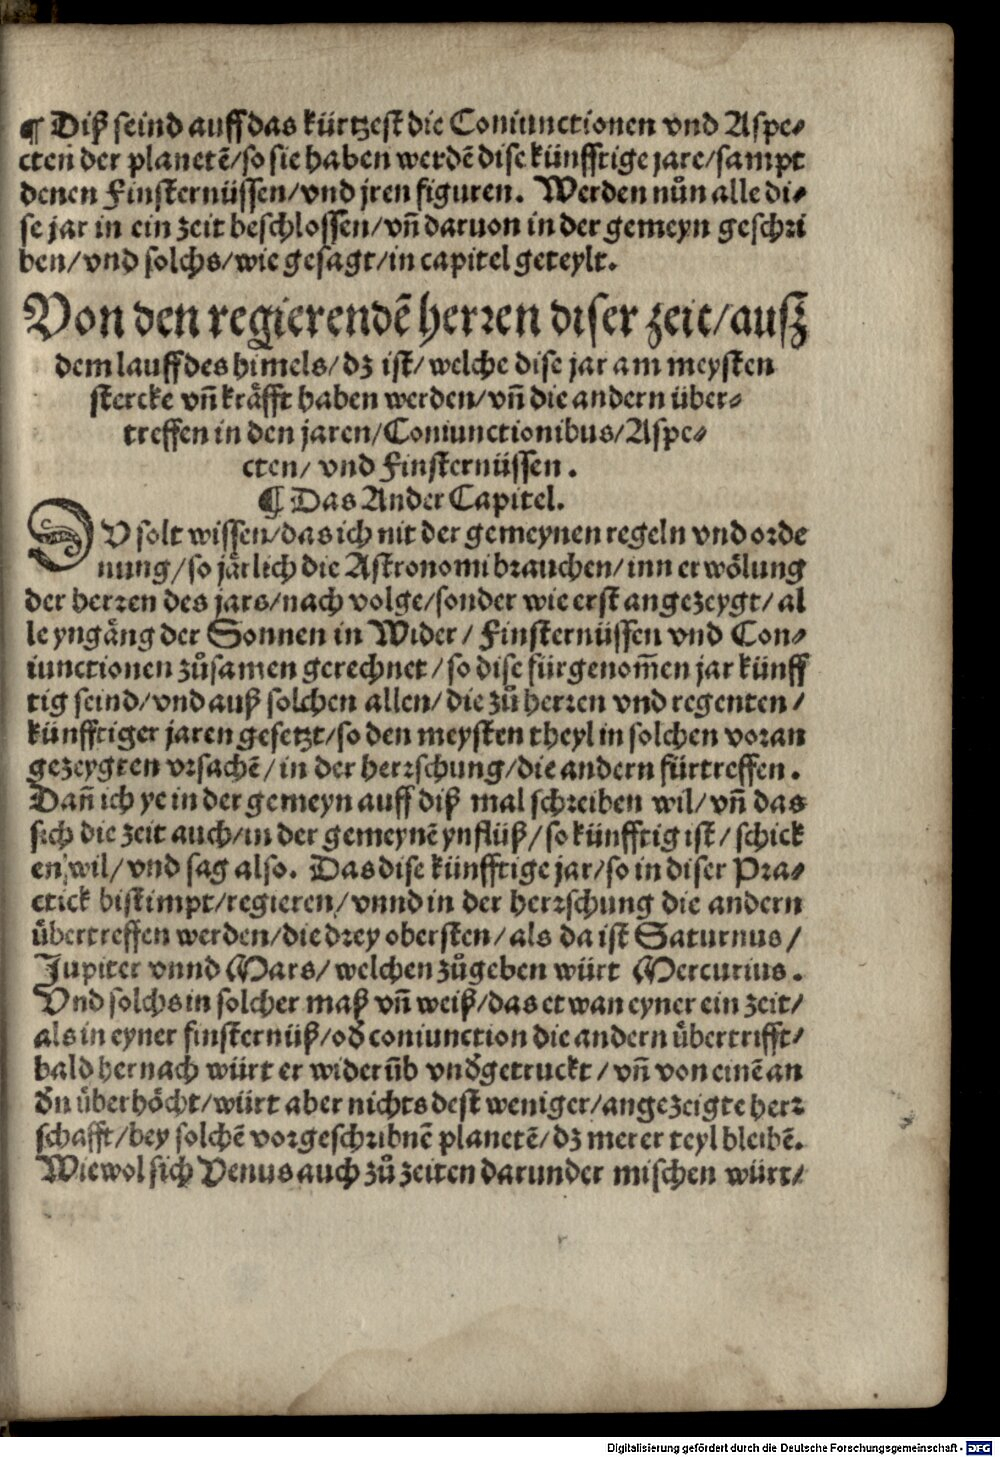 ¶ Diß seind auff das kürtzest die Coniunctionen vnd Aspe⸗
cten der planetē/so sie haben werdē dise künfftige jare/sampt
denen Finsternüssen/vnd jren figuren. Werden nůn alle di⸗
se jar in ein zeit beschlossen/vñ daruon in der gemeyn geschri
ben/vnd solchs/wie gesagt/in capitel geteylt.
Von den regierendē herren diser zeit/ausz
dem lauff des himels/dz ist/welche dise jar am meysten
stercke vñ kräfft haben werden/vñ die andern über⸗
treffen in den jaren/Coniunctionibus/Aspe⸗
cten/ vnd Finsternüssen.
¶ Das Ander Capitel.
DV solt wissen/das ich nit der gemeynen regeln vnd orde
nung/so järlich die Astronomi brauchen/inn erwölung
der herren des jars/nach volge/sonder wie erst angezeygt/al
le yngäng der Sonnen in Wider/ Finsternüssen vnd Con⸗
iunctionen zůsamen gerechnet/so dise fürgenom̄en jar künff
tig seind/vnd auß solchen allen/die zů herren vnd regenten/
künfftiger jaren gesetzt/so den meysten theyl in solchen voran
gezeygten vrsachē/in der herrschung/die andern fürtreffen.
Dañ ich ye in der gemeyn auff diß mal schreiben wil/vñ das
sich die zeit auch/in der gemeynē ynflüß/so künfftig ist/schick
en wil/vnd sag also. Das dise künfftige jar/so in diser Pra⸗
ctick bistimpt/regieren/vnnd in der herrschung die andern
übertreffen werden/die drey obersten/als da ist Saturnus/
Jupiter vnnd Mars/welchen zůgeben würt Mercurius.
Vnd solchs in solcher maß vñ weiß/das etwan eyner ein zeit/
als in eyner finsternüß/od̄ coniunction die andern übertrifft/
bald hernach würt er widerūb vnd̄getruckt/vñ von einē an
d̄n überhöcht/würt aber nichts dest weniger/angezeigte herr
schafft/bey solchē vorgeschribnē planetē/dz merer teyl bleibē.
Wiewol sich Venus auch zů zeiten darunder mischen würt/
Digitalisierung gefördert durch die Deutsche Forschungsgemeinschaft - DFG